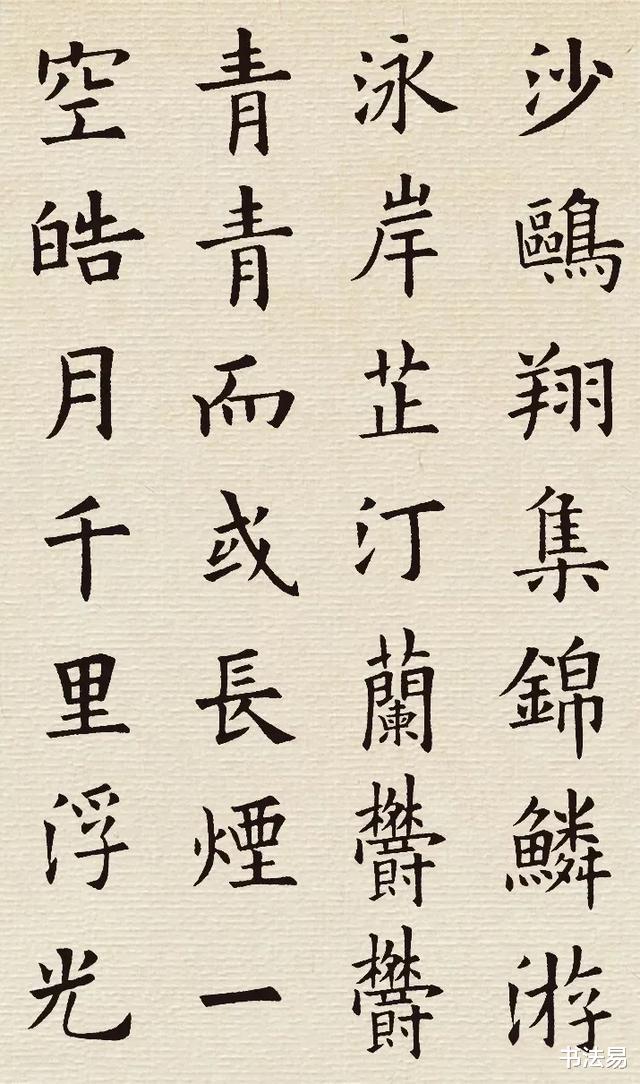 沙鷗翔集錦鱗游
泳岸芷汀蘭欝欝
青青而或長煙一
空皓月千里浮光
书法易